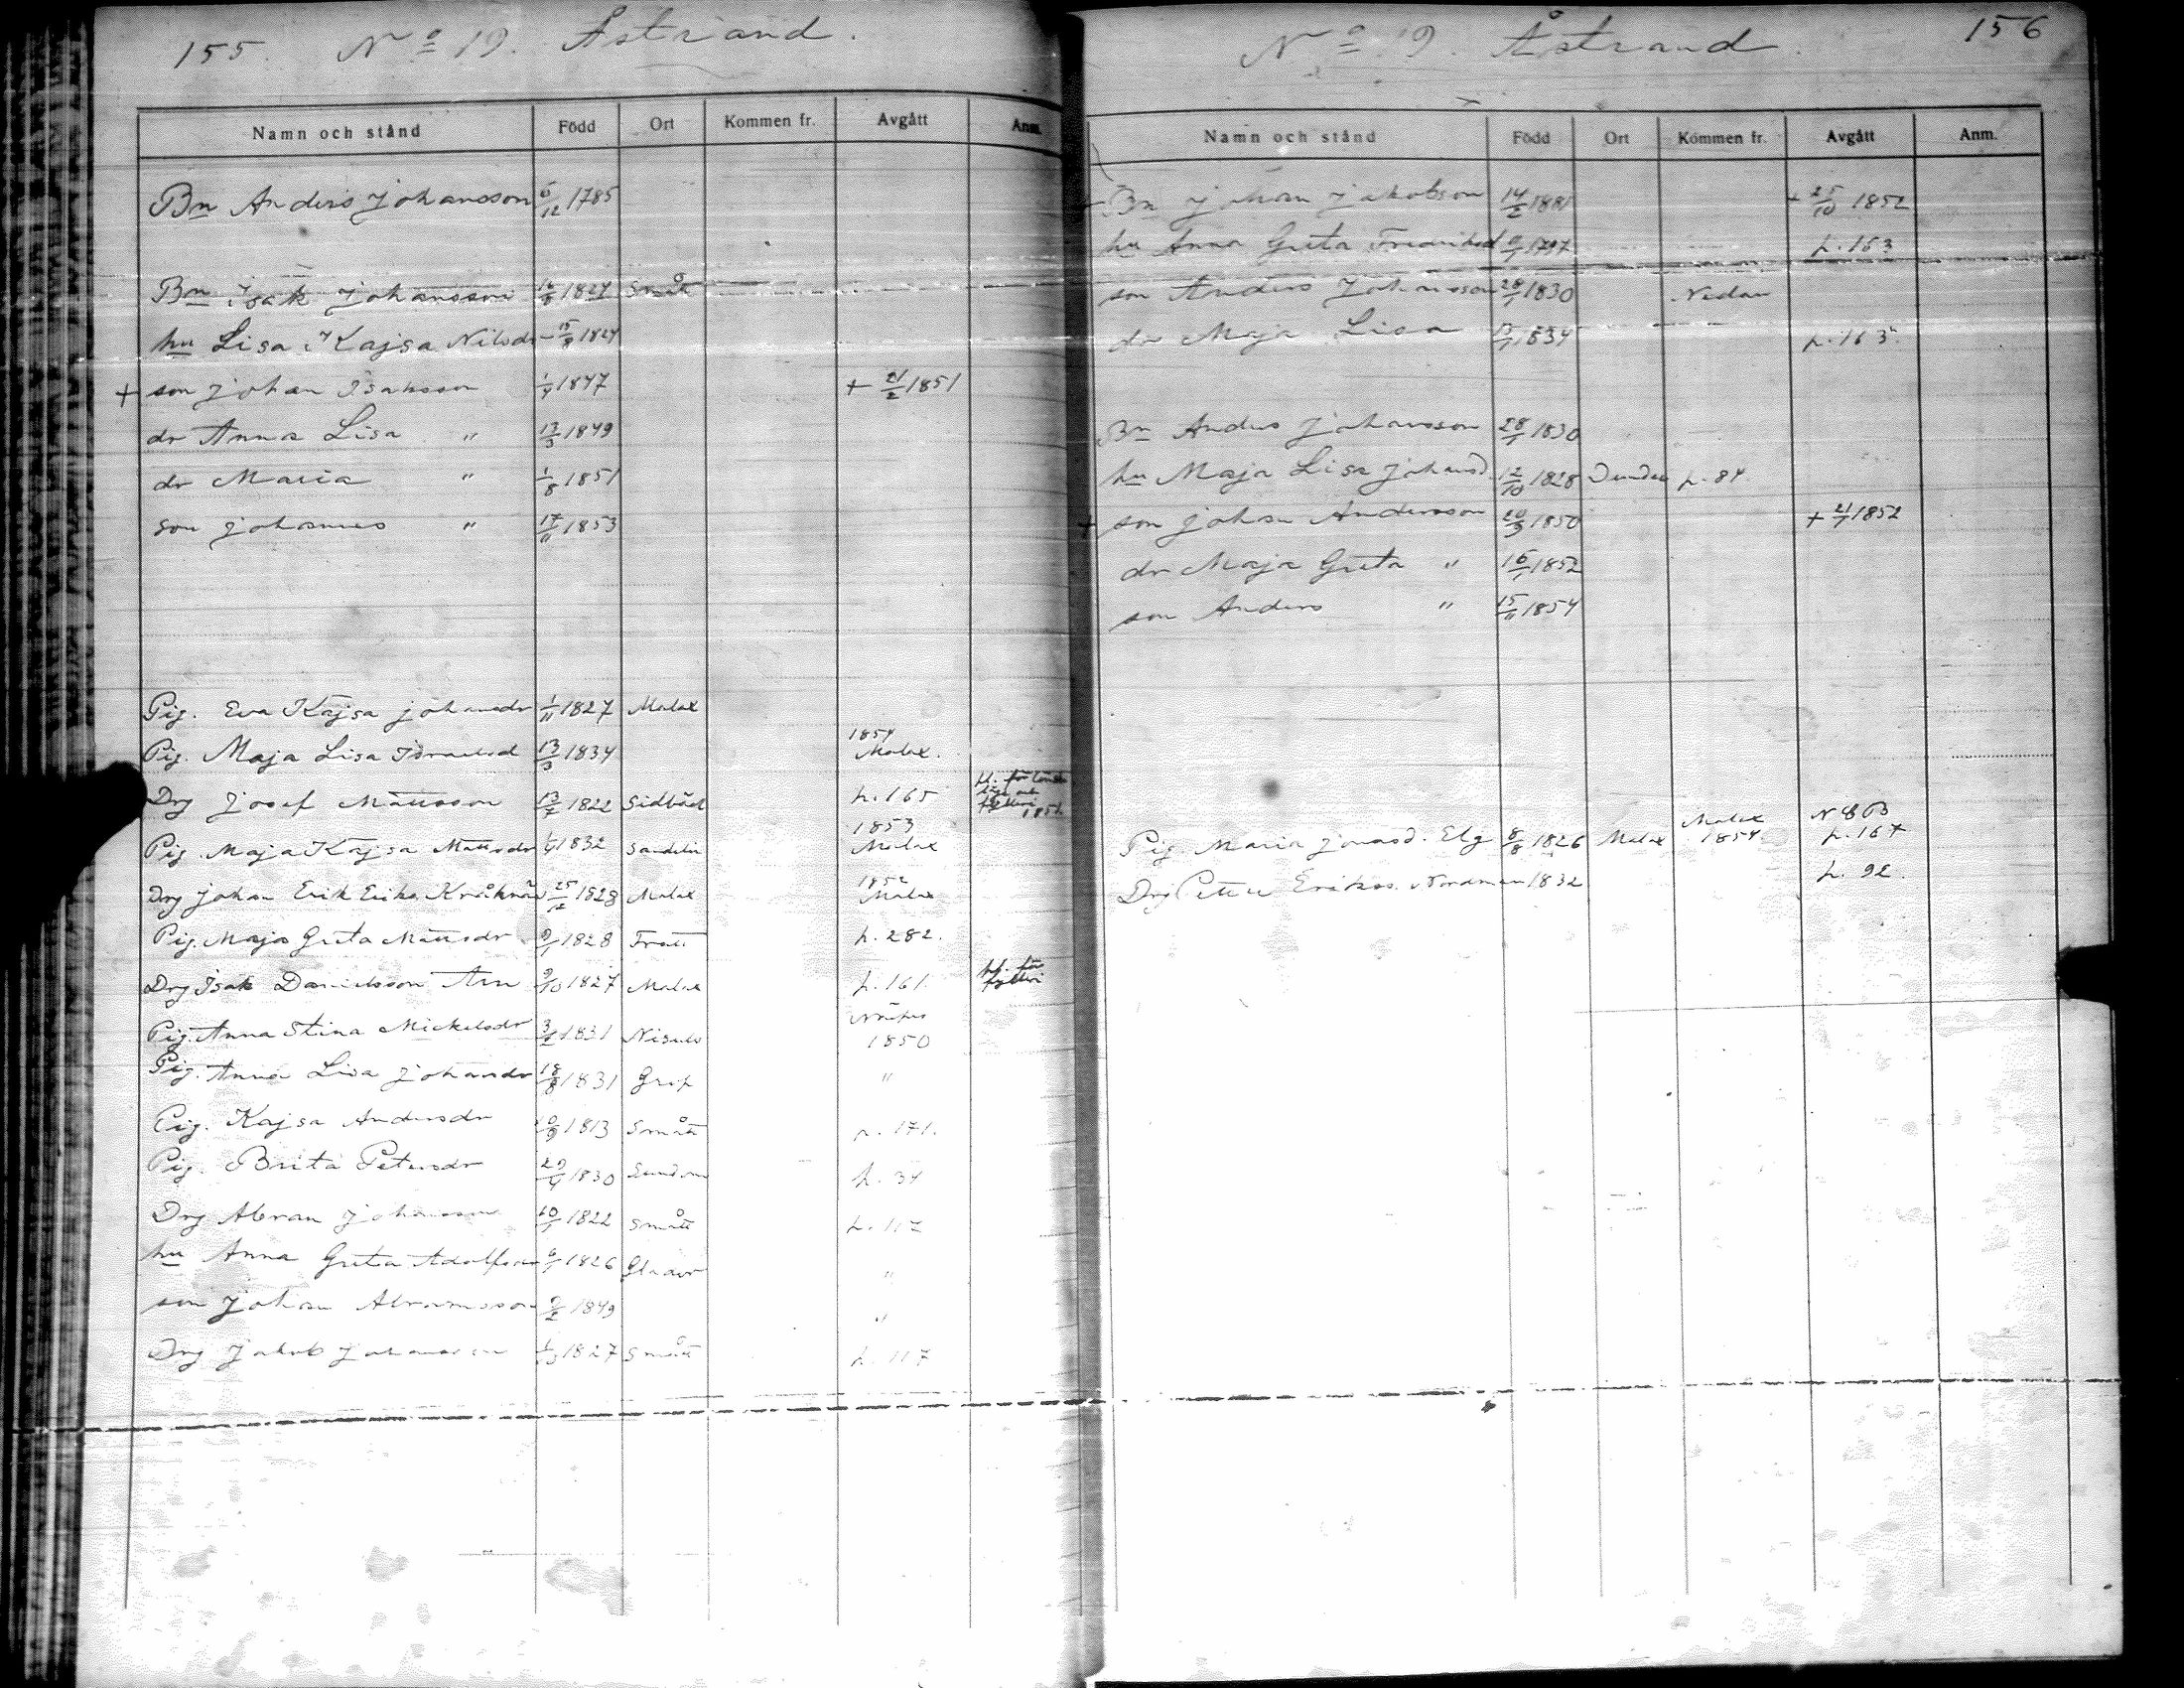 155. No 19. Åstrand.
Namn och stånd Född Ort Kommen fr. Avgått Anm.
Bn Anders Johansson 6/12 1785
Bn Isak Johansson 1827 Smått
hu Lisa Kajsa Nilsdr 1824
+ son Johan Isaksson 1/4 1847 + 21/2 1851
dr Anna Lisa " 13/3 1849
dr Maria " 1/8 1851
son Johannes " 17/11 1853
Pig. Eva Kajsa Johansdr 1/11 1827 Malax
Pig. Maja Lisa Israelsd 13/3 1834 1854 Malax.
Drg Josef Mattsson 13/7 1822 Sidbäck p. 165 1852
Pig. Maja Kajsa Mattsdr 1832 Sandelin 1853 Malax
Drg Johan Erik Eriks. Kråknäs 25/12 1828 Malax 1852 Malax
Pig. Maja Greta Mattsdr 9/1 1828 Trått p. 282.
Drg Isak Danielsson Arn 9/10 1827 Malax p. 161. pl. för fylleri
Pig. Anna Stina Mickelsdr 1831 Nisuls Närpes 1850
Pig. Anna Lisa Johansdr 18/8 1831 Grip "
Pig. Kajsa Andersdr 1813 Smått p. 171.
Pig. Brita Petersdr 29/4 1830 Sundom p. 34
Drg Abram Johansson 20/1 1822 Smått p. 117
hu Anna Greta Adolfsdr 6/1 1826 "
son Johan Abramsson 9/2 1849 "
Drg Jakob Johansson 1827 Smått p. 117
No 19. Åstrand. 156
Namn och stånd Född Ort Kommen fr. Avgått Anm.
+ Bn Johan Jakobson 14/2 + 25/10 1852
hu Anna Greta Fredriksd 1797 p. 163
son Anders Johansson 28/1 1830 Nedan
dr Maja Lisa 1834 p. 163.
Bn Anders Johansson 28/1 1830
hu Maja Lisa Johansd. 12/10 1828 p. 84
+ son Johan Andersson 20/9 1850 + 21/1 1852
dr Maja Greta " 16/1 1852
son Anders " 15/11 1854
Pig. Maria Jonasd. Elg 8/8 1826 Malax Malax 1854. p. 167
Drg Petter Erikss. Nordman 1832 p. 92.